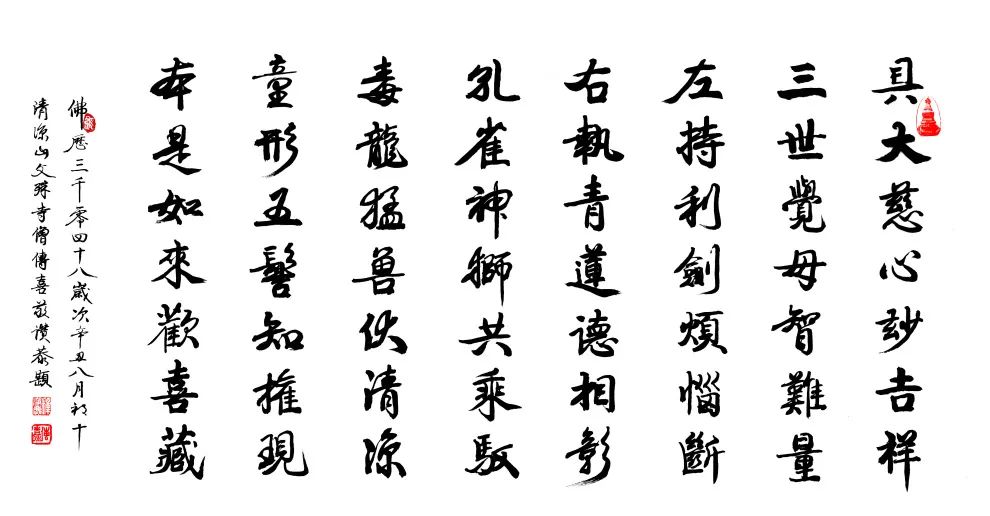 具大慈心玅吉祥
三世覺母智難量
左持利劍煩惱斷
右執青蓮德相彰
孔雀神獅共乘馭
毒龍猛兽伏清凉
童形五髻知權現
本是如來歡喜藏
佛歷三千零四十八歲次辛丑八月初十
清凉山文殊寺僧傳喜敬讚恭題